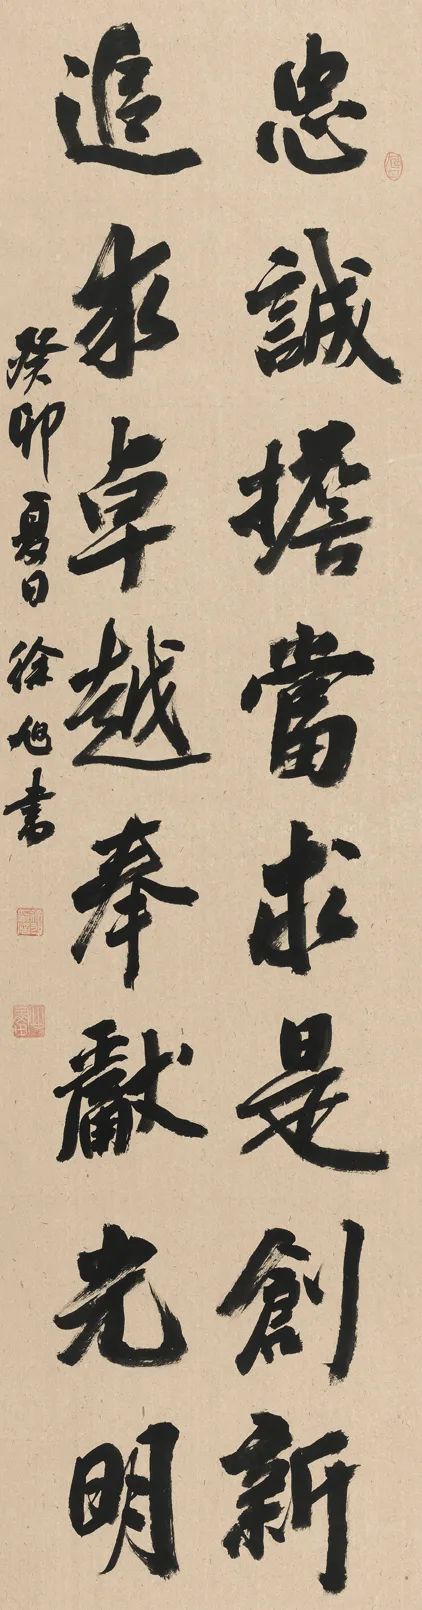 忠誠擔當求是創新
追求卓越奉獻光明
癸卯夏日徐旭書